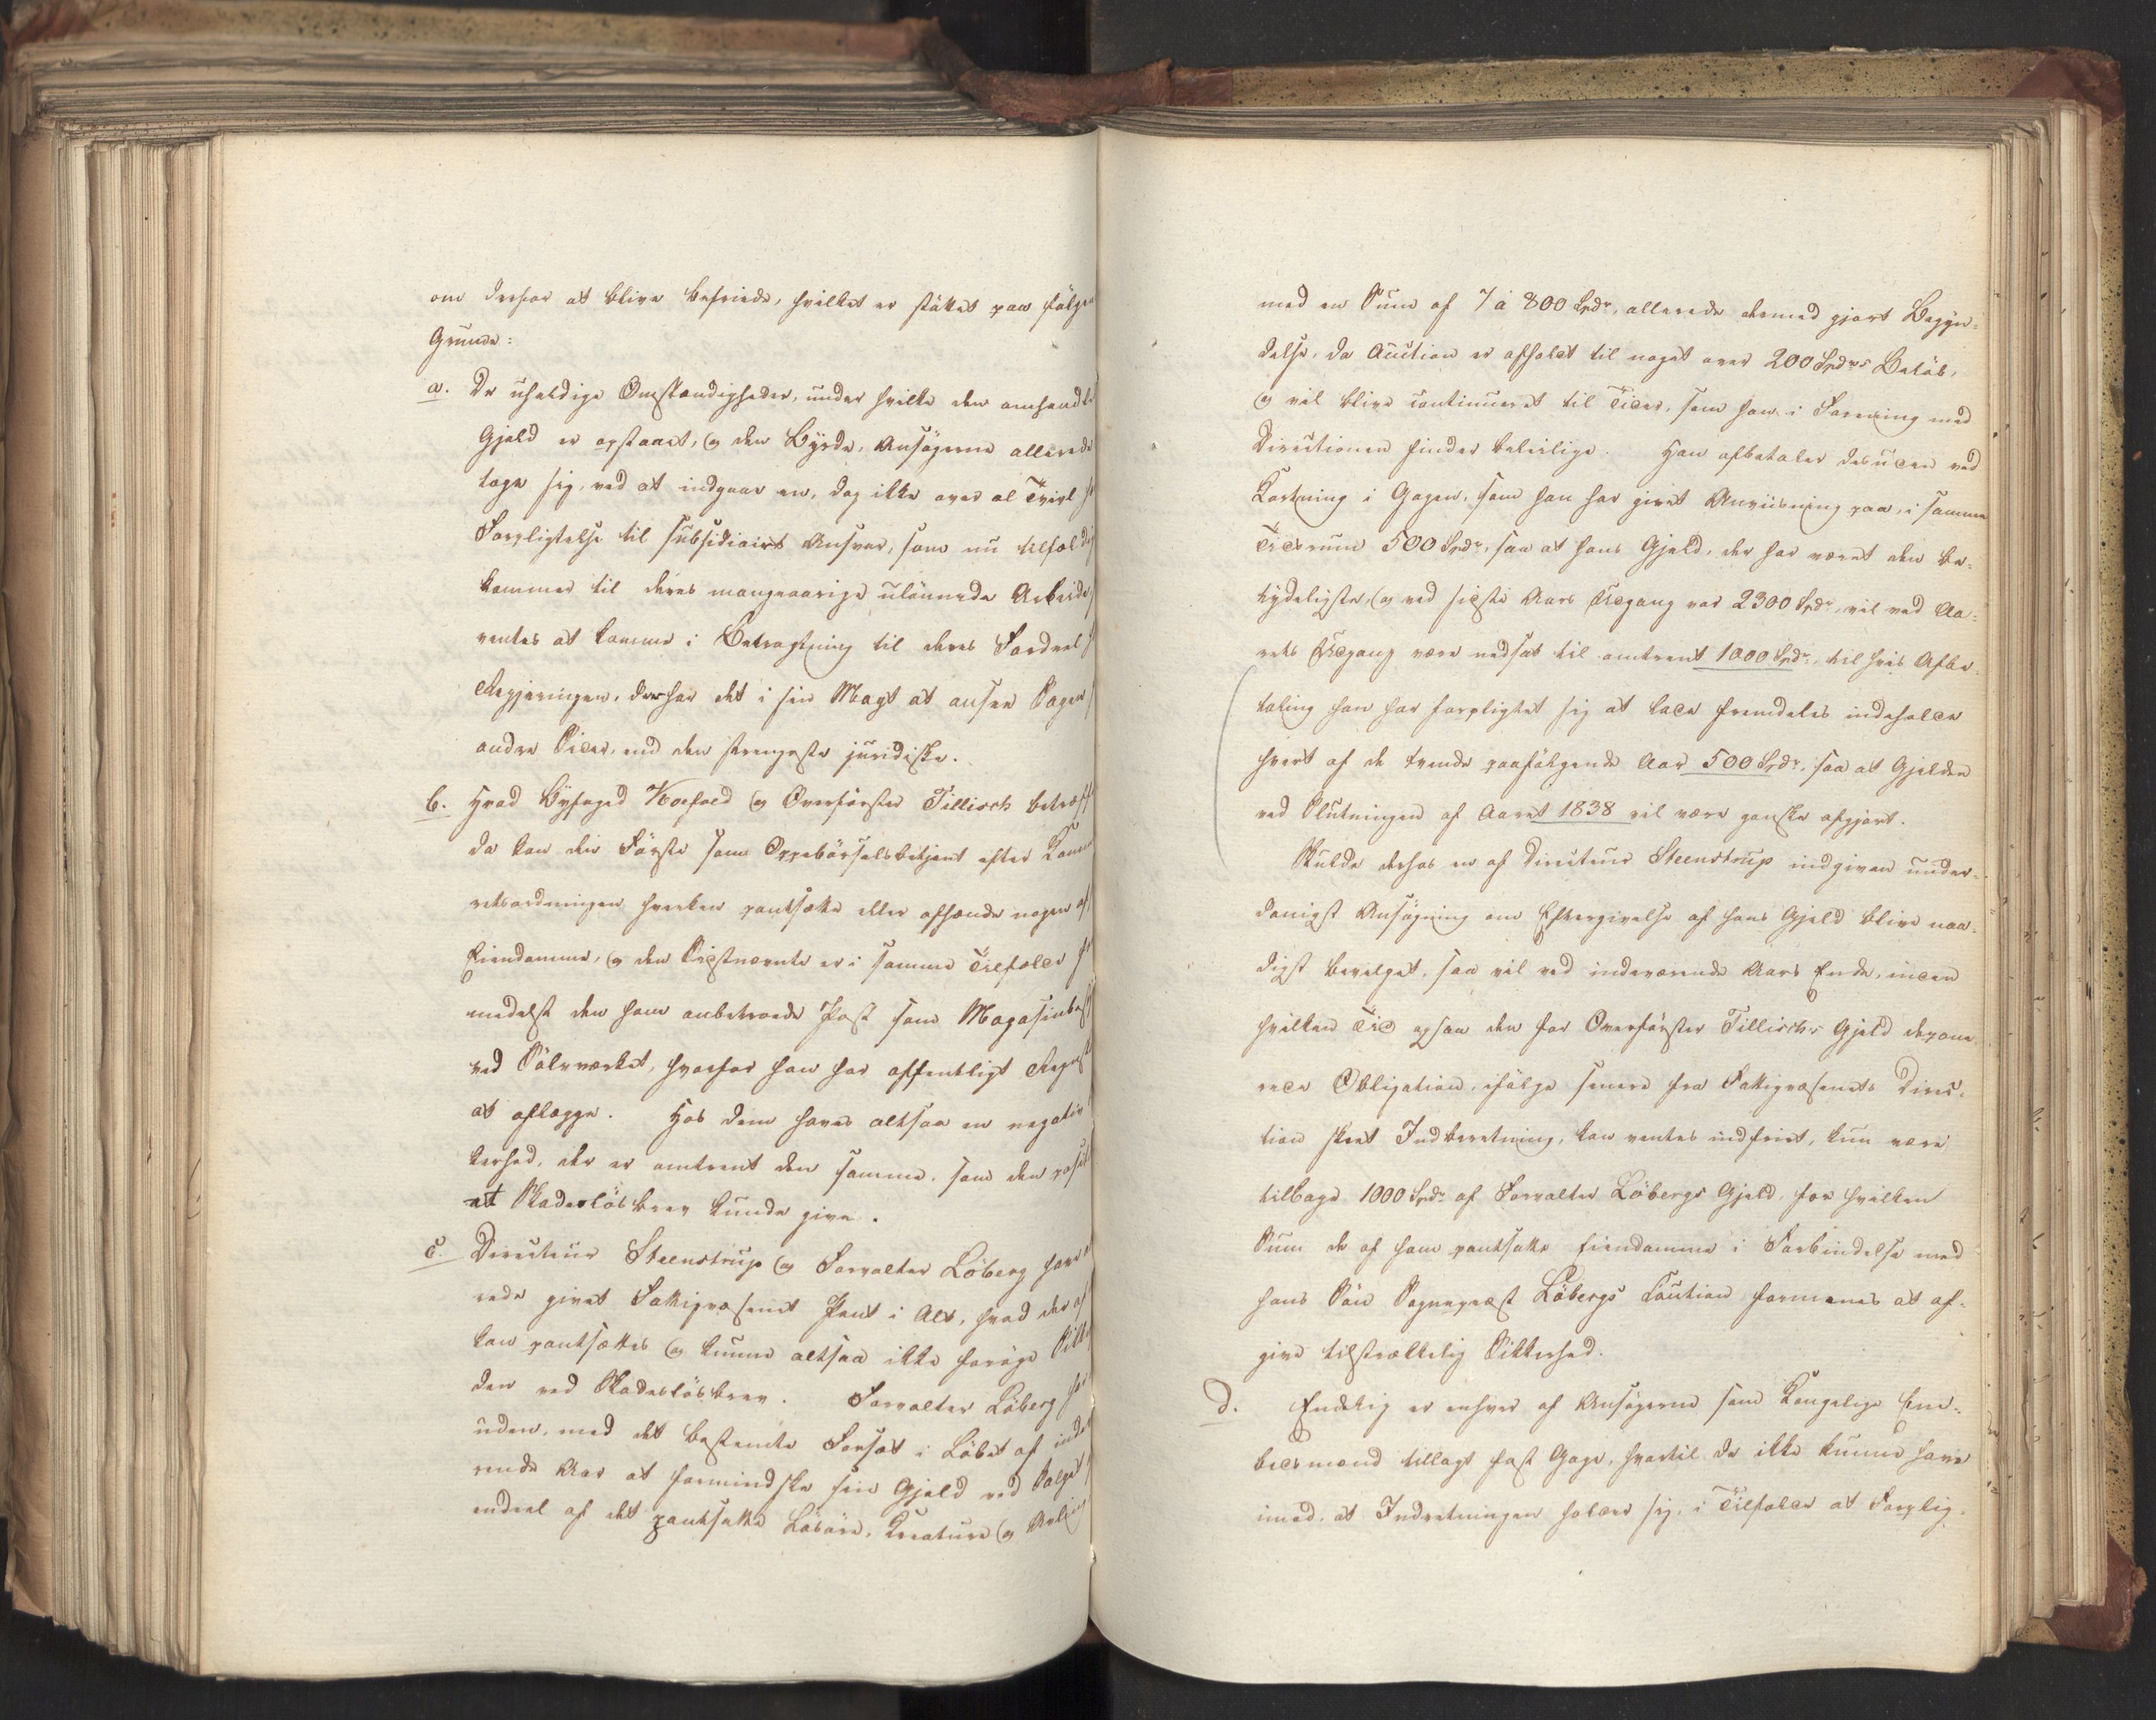 om derfor at blive befriede, hvilket er støttet paa følgen
Grunde:
a. De uheldige Omstændigheder, under hvilke den omhandle
Gjæld er opstaaet, og den Byrde, Ansøgerne allerede
toge sig, ved at indgaae en, dog ikke over al Tvivl
Forpligtelse til subsidiairt Ansvar, som nu tilfældig
kommer til deres mangeaarige ulønnede Arbeide,
ventes at komme i Betragtning til deres Fordeel
Regjeringen, der har det i sin Magt at ansee Sagen
andre Sider, end den strengeste juridiske.
b. Hvad Byfoged Koefoed og Overførster Tillisch betræff
da kan den Første som Oppebørselsbetjent efter Kam
retsordningen hverken pantsætte eller afhænde nogen af
Eiendomme, og den Sidstnævnte er i samme Tilfælde
medelst den ham anbetroede Post som Magasinbest
ved Sølvværket, hvorfor han har offentligt Regnsk
at aflægge. Hos dem haves altsaa en negativ
kerhed, der er omtrent den samme, som den posit
et Skadesløsbrev kunde give.
c. Directeur Steenstrup og Forvalter Löberg have
rede givet Fattigvæsenet Pant i Alt, hvad der af
kan pantsættes og kunne altsaa ikke forøge Sikk
den ved Skadesløsbrev. Forvalter Löberg har
uden, med det bestemte Forsæt i Løbet af inde
rende Aar at formindske sin Gjæld ved Salget
endeel af det pantsatte Løsøre, Creature og Avling
med en Sum af 7 à 800 Spdr, allerede dermed gjort Begyn-
delse, da Auction er afholdt til noget over 200 Spdrs Beløb,
og vil blive continueret til Tider, som han i Forening med
Directionen finder beleilige. Han afbetaler desuden ved
Kortning i Gagen, som han har givet Anviisning paa, i samme
Tidsrum 500 Spdr, saa at hans Gjæld, der har været den be-
tydeligste, og ved sidste Aars Udgang var 2300 Spdr, vil ved Aa-
rets Udgang være nedsat til omtrent 1000 Spdr, til hvis Afbe-
taling han har forpligtet sig at lade fremdeles indeholde
hvert af de tvende paafølgende Aar 500 Spdr, saa at Gjelden
ved Slutningen af Aaret 1838 vil være ganske afgjort.
Skulde derhos en af Directeur Steenstrup indgiven under-
danigst Ansøgning om Eftergivelse af hans Gjeld blive naa-
digst bevilget, saa vil ved indeværende Aars Ende, inden
hvilken Tid ogsaa den for Overførster Tillischs Gjeld depone-
rede Obligation, ifølge senere fra Fattigvæsenets Direc-
tion skeet Indberetning, kan ventes indfriet, kun være
tilbage 1000 Spdr af Forvalter Löbergs Gjeld, for hvilken
Sum de af ham pantsatte Eiendomme i Forbindelse med
hans Søn Sognepræst Löbergs Caution formenes at af-
give tilstrækkelig Sikkerhed.
d. Endelig er enhver af Ansøgerne som Kongelige Em-
bedsmænd tillagt fast Gage, hvortil de ikke kunne have
imod, at Indretningen holder sig, i Tilfælde at Forplig-